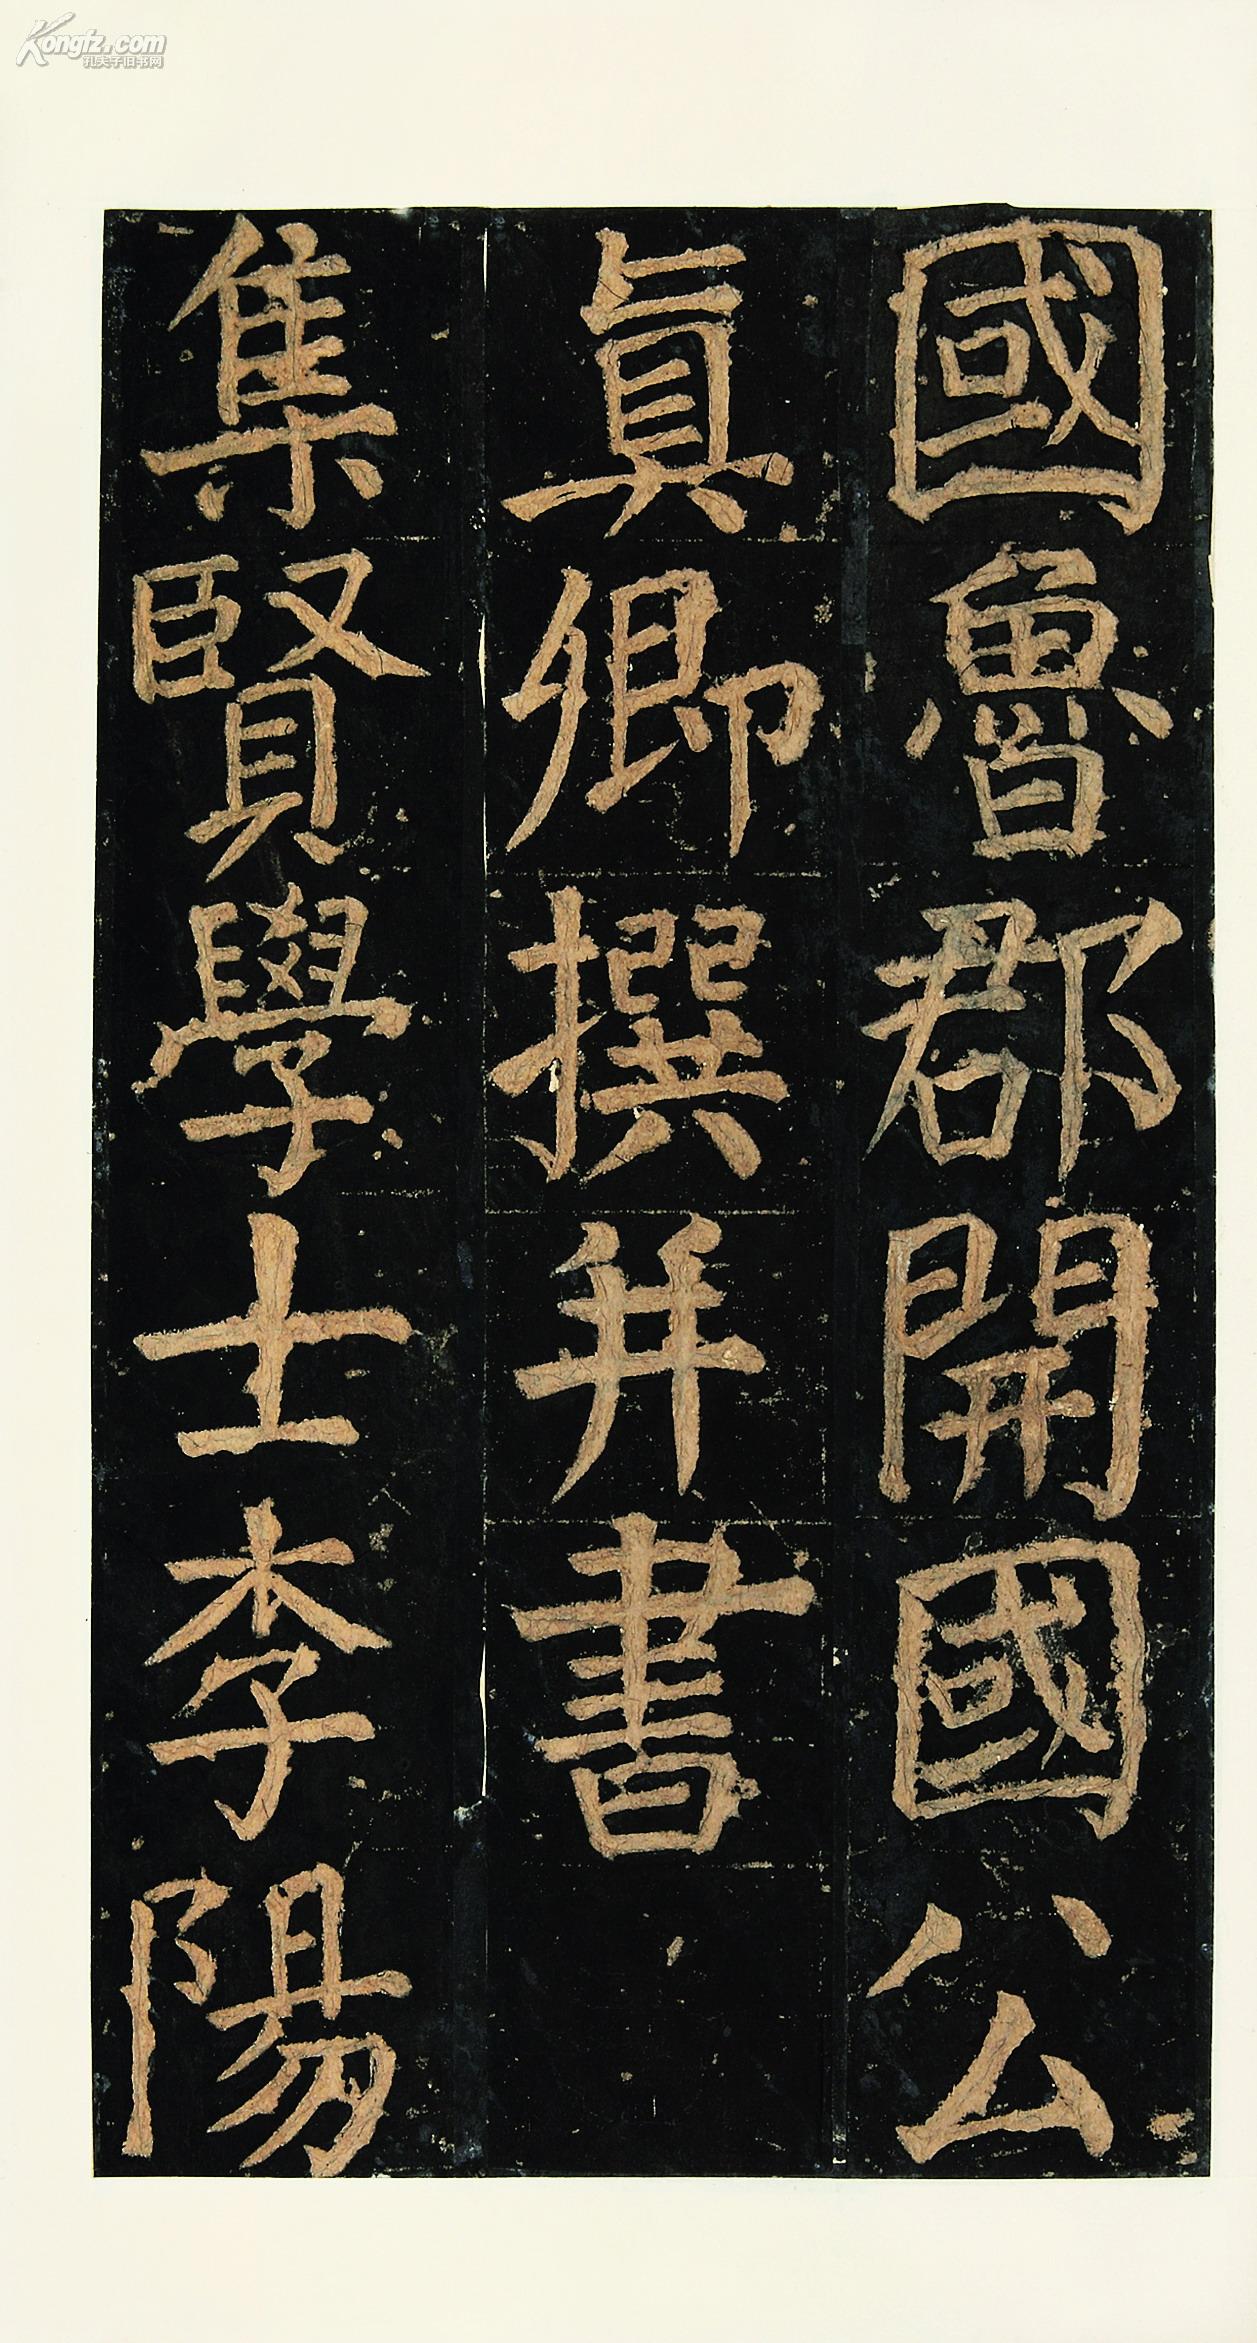 國魯郡開國公
眞卿撰并書
集賢學士李陽
Kongfz.com
孔夫子旧书网